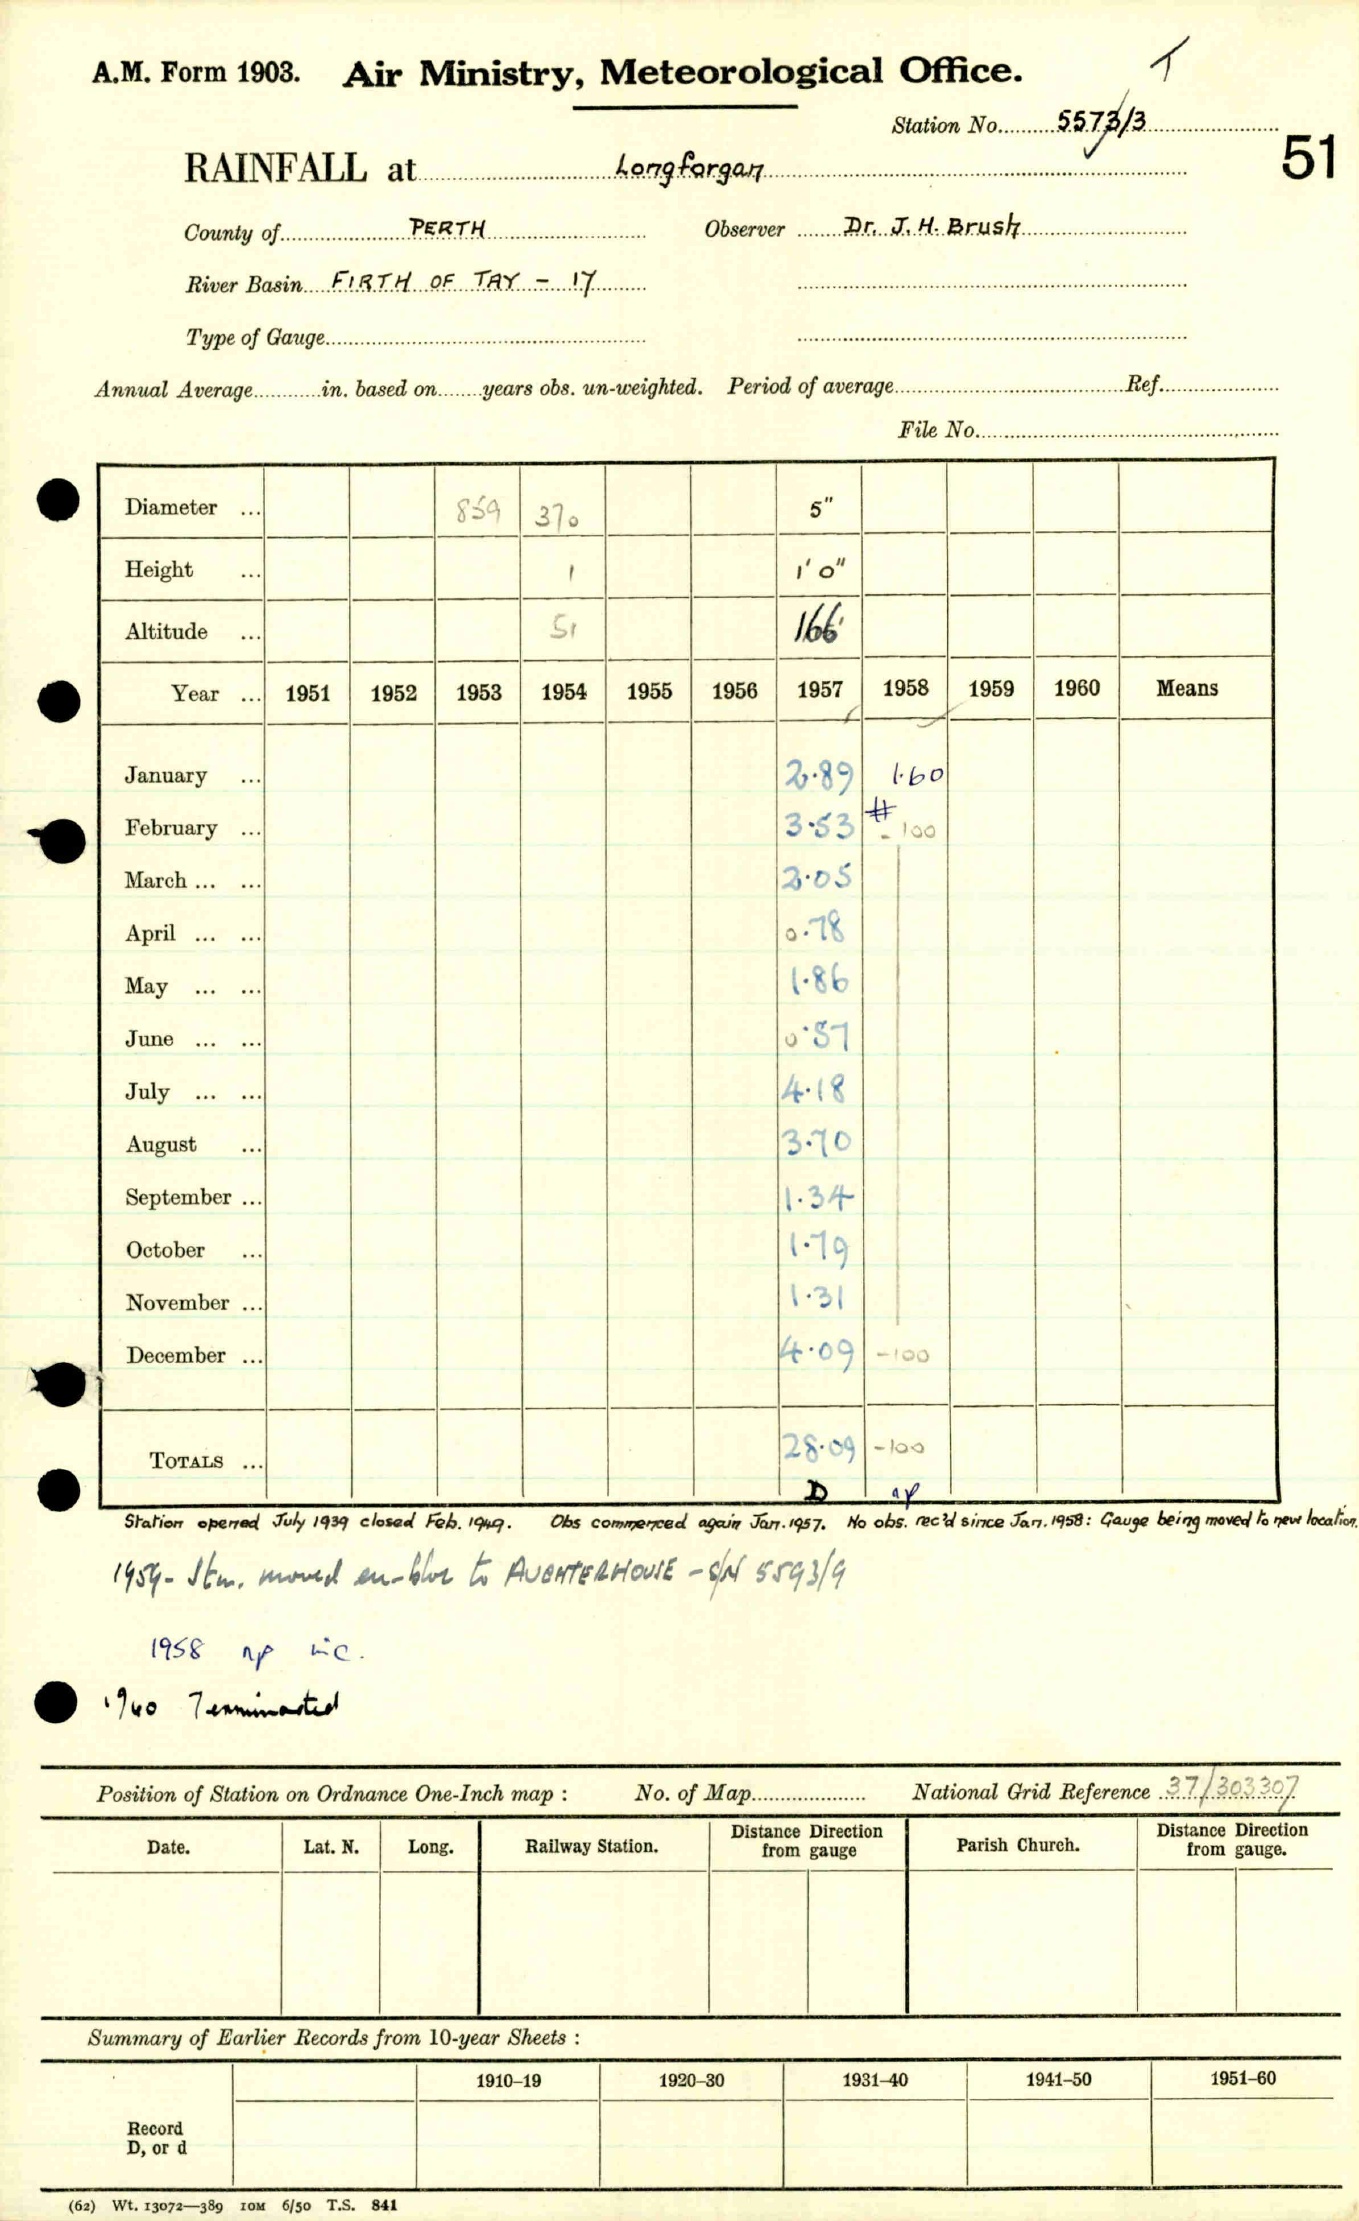 T
A.M. Form 1903. Air Ministry, Meteorological Office.
Station No. 5573/3
51
RAINFALL at Longforgan
County of PERTH Observer Dr. J. H. Brush
River Basin FIRTH OF TAY - 17
Type of Gauge
Annual Average in. based on years obs. un-weighted. Period of average Ref.
File No.
Diameter ... 859 370 5"
Height ... 1 1' 0"
Altitude ... 51 166'
Year ... 1951 1952 1953 1954 1955 1956 1957 1958 1959 1960 Means
January ... 2.89 1.60
February ... 3.53 # -100
March ... ... 2.05
April ... ... 0.78
May ... ... 1.86
June ... ... 0.57
July ... ... 4.18
August ... 3.70
September ... 1.34
October ... 1.79
November ... 1.31
December ... 4.09 -100
TOTALS ... 28.09 -100
D np
Station opened July 1939 closed Feb. 1949. Obs commenced again Jan. 1957. No obs. rec'd since Jan. 1958: Gauge being moved to new location.
1959 - Stn. moved en-bloc to AUCHTERHOUSE - S/N 5593/9
1958 np inc.
1960 Terminated
Position of Station on Ordnance One-Inch map : No. of Map National Grid Reference 37/303307
Date. Lat. N. Long. Railway Station. Distance Direction from gauge Parish Church. Distance Direction from gauge.
Summary of Earlier Records from 10-year Sheets :
1910–19 1920–30 1931–40 1941–50 1951–60
Record
D, or d
(62) Wt. 13072—389 10M 6/50 T.S. 841